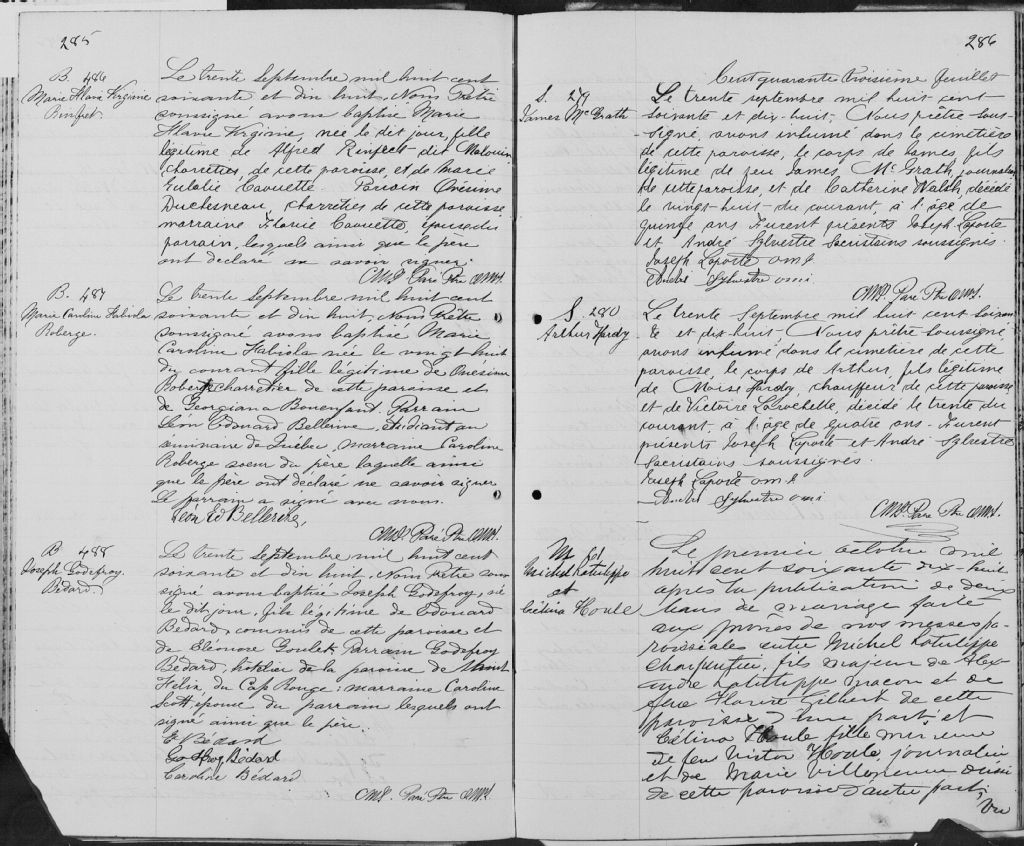 285
B. 486
Marie Flavie Virginie
Rinfret
Le trente Septembre mil huit cent
soixante et dix huit, Nous Prêtre
soussigné avons baptisé Marie
Flavie Virginie, née le dit jour, fille
légitime de Alfred Rinfret dit Malouin
charretier, de cette paroisse, et de Marie
Eulalie Caouette. Parrain Onésime
Duchesneau, charretier de cette paroisse,
marraine Flavie Caouette, épouse du
parrain, lesquels ainsi que le père
ont déclaré ne savoir signer.
Paré Ptre O.M.I.
B. 487
Marie Caroline Fabiola
Roberge.
Le trente Septembre mil huit cent
soixante et dix huit, Nous Prêtre
soussigné avons baptisé Marie
Caroline Fabiola née le vingt huit
du courant fille légitime de Onesime
Roberge charretier de cette paroisse et
de Georgiana Bonenfant. Parrain
Léon Edouard Bellerive, étudiant au
séminaire de Québec, marraine Caroline
Roberge soeur du père laquelle ainsi
que le père ont déclaré ne savoir signer
Le parrain a signé avec nous.
Léon Ed Bellerive,
Paré Ptre O.M.I.
B 488
Joseph Godefroy
Bédard.
Le trente Septembre mil huit cent
soixante et dix huit, Nous Prêtre sous
signé avons baptisé Joseph Godefroy, né
le dit jour, fils légitime de Edouard
Bédard, commis de cette paroisse et
de Eléonore Goulet. Parrain Godefroy
Bédard, hôtelier de la paroisse de Saint
Félix, du Cap Rouge; marraine Caroline
Scott, épouse du parrain lesquels ont
signé ainsi que le père.
E Bédard
Godfroy Bédard
Caroline Bédard
Paré Ptre O.M.I.
286
Cent quarante troisième feuillet
S. 279
James McGrath
Le trente septembre mil huit cent
soixante et dix-huit, Nous prêtre sous-
signé, avons inhumé dans le cimetière
de cette paroisse, le corps de James, fils
légitime de feu James McGrath, journalier
de cette paroisse, et de Catherine Walsh, décédé
le vingt-huit du courant, à l'âge de
quinze ans. Furent présents Joseph Laporte
et André Sylvestre Sacristains soussignés.
Joseph Laporte o m i
André Sylvestre o m i
Paré Ptre O.M.I.
S. 280
Arthur Hardy
Le trente Septembre mil huit cent soixan
te et dix-huit, Nous prêtre soussigné,
avons inhumé dans le cimetière de cette
paroisse, le corps de Arthur, fils légitime
de Moïse Hardy, chauffeur de cette paroisse
et de Victoire Larochelle, décédé le trente du
courant, à l'âge de quatre ans. Furent
présents Joseph Laporte et André Sylvestre
Sacristains soussignés.
Joseph Laporte o m i
André Sylvestre o m i
Paré Ptre O.M.I.
M
Michel Latulippe
et
Célina Houle
Le premier octobre mil
huit cent soixante dix-huit
après la publication de deux
bans de mariage faite
aux prônes de nos messes pa-
roissiales entre Michel Latulippe
charpentier, fils majeur de Alex-
andre Latulippe maçon et de
feue Flavie Gilbert de cette
paroisse d'une part, et
Célina Houle fille mineure
de feu Victor Houle, journalier
et de Marie Villeneuve aussi
de cette paroisse d'autre part;
Vu